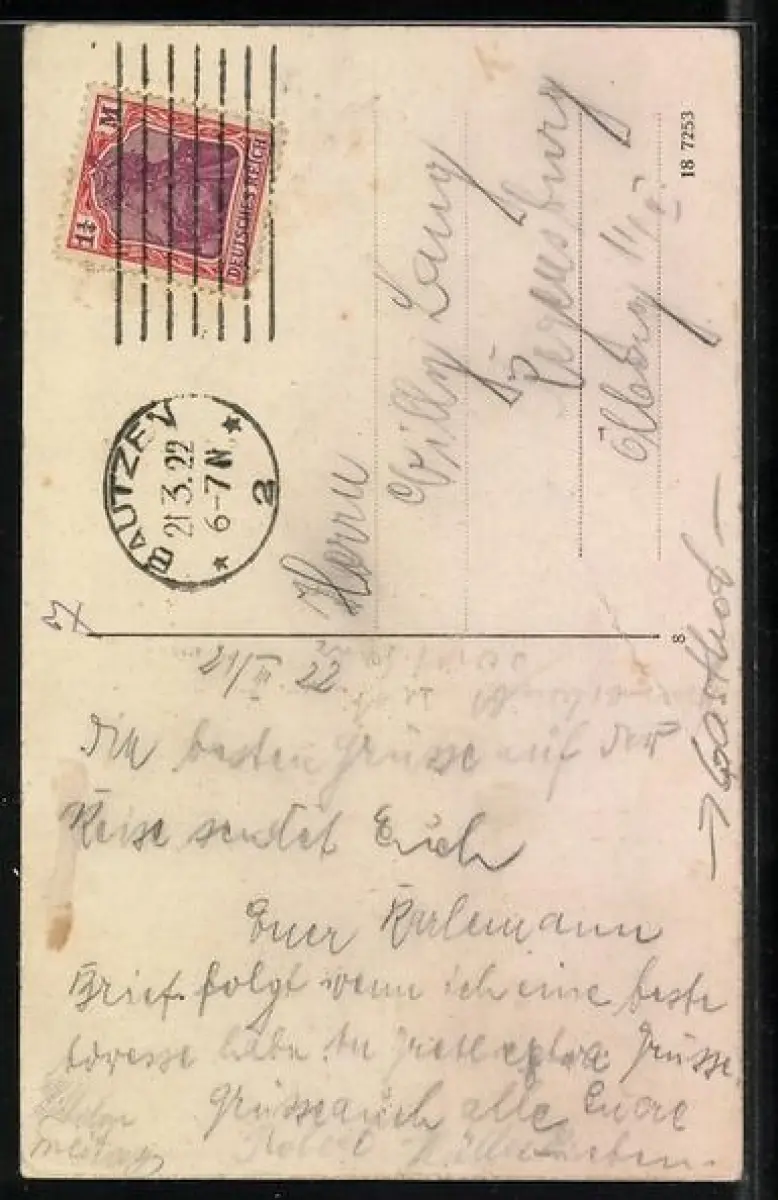 1½ M
DEUTSCHES REICH
BAUTZEN
21.3.22
6-7 N
2
Herrn
Willy Lang
Regensburg
Ölberg
18 7253
8
Gasthof
21/III 22
Die besten Grüsse auf der
Reise sendet Euch
Euer Karlemann
Brief folgt wenn ich eine beste
Adresse habe. Grüsse
Grüsse auch alle Eure